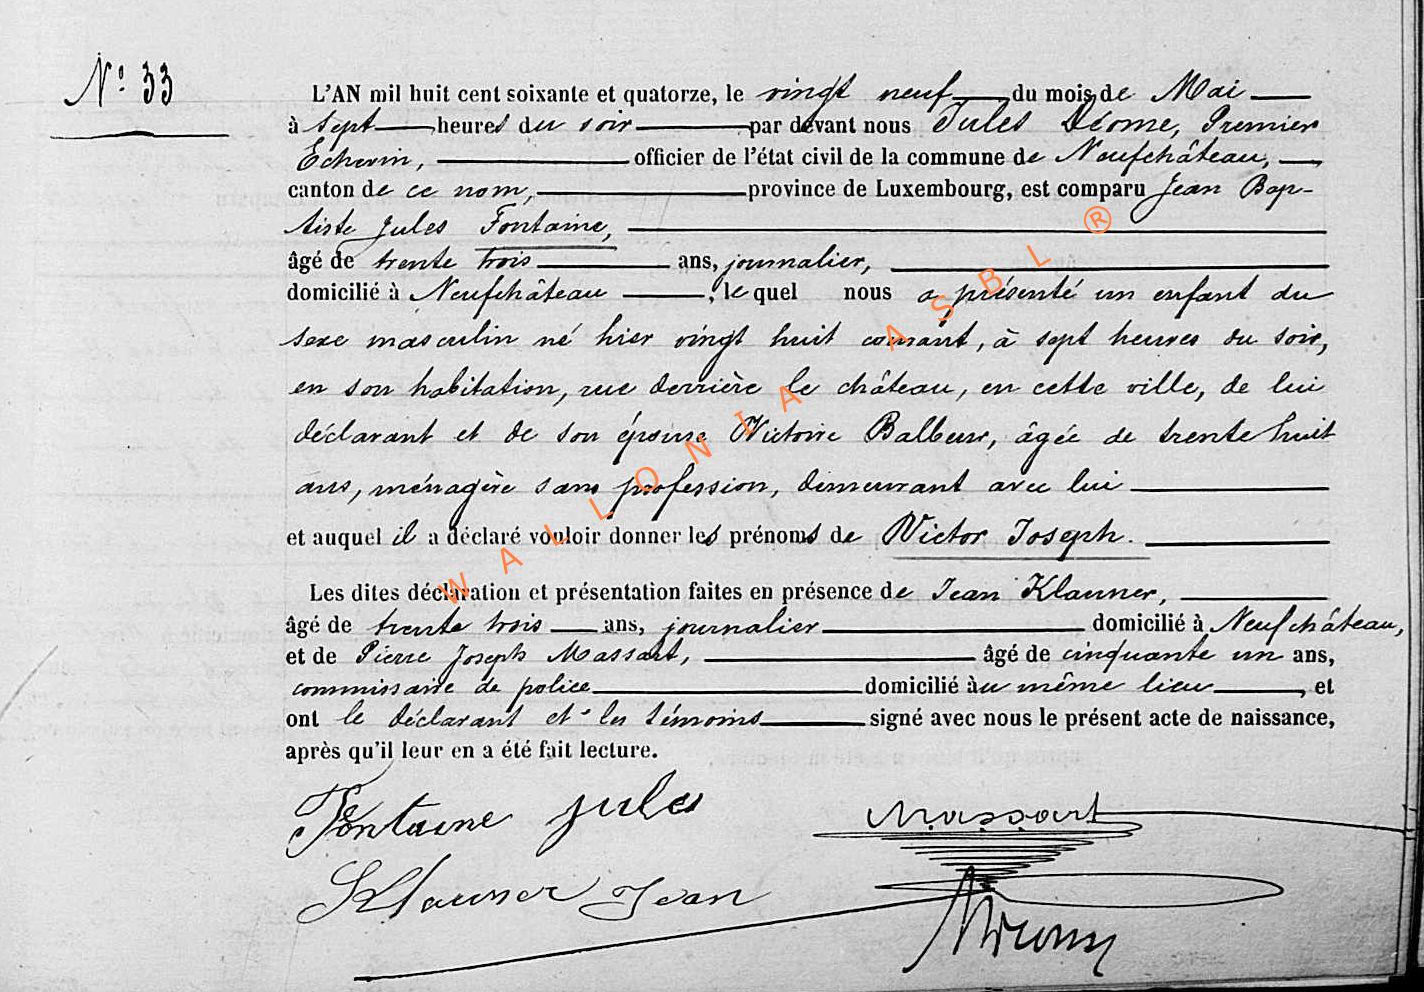 N° 33
L'AN mil huit cent soixante et quatorze, le vingt neuf du mois de Mai
à sept heures du soir par devant nous Jules Déome, Premier
Echevin, officier de l'état civil de la commune de Neufchâteau,
canton de ce nom, province de Luxembourg, est comparu Jean Bap-
tiste Jules Fontaine,
âgé de trente trois ans, journalier,
domicilié à Neufchâteau, le quel nous a présenté un enfant du
sexe masculin né hier vingt huit courant, à sept heures du soir,
en son habitation, rue derrière le château, en cette ville, de lui
déclarant et de son épouse Victoire Balbeur, âgée de trente huit
ans, ménagère sans profession, demeurant avec lui
et auquel il a déclaré vouloir donner les prénoms de Victor Joseph.
Les dites déclaration et présentation faites en présence de Jean Klauner,
âgé de trente trois ans, journalier domicilié à Neufchâteau,
et de Pierre Joseph Massart, âgé de cinquante un ans,
commissaire de police domicilié au même lieu, et
ont le déclarant et les témoins signé avec nous le présent acte de naissance,
après qu'il leur en a été fait lecture.
Fontaine jules
Massart
Klauner Jean
WALLONIA ASBL ®